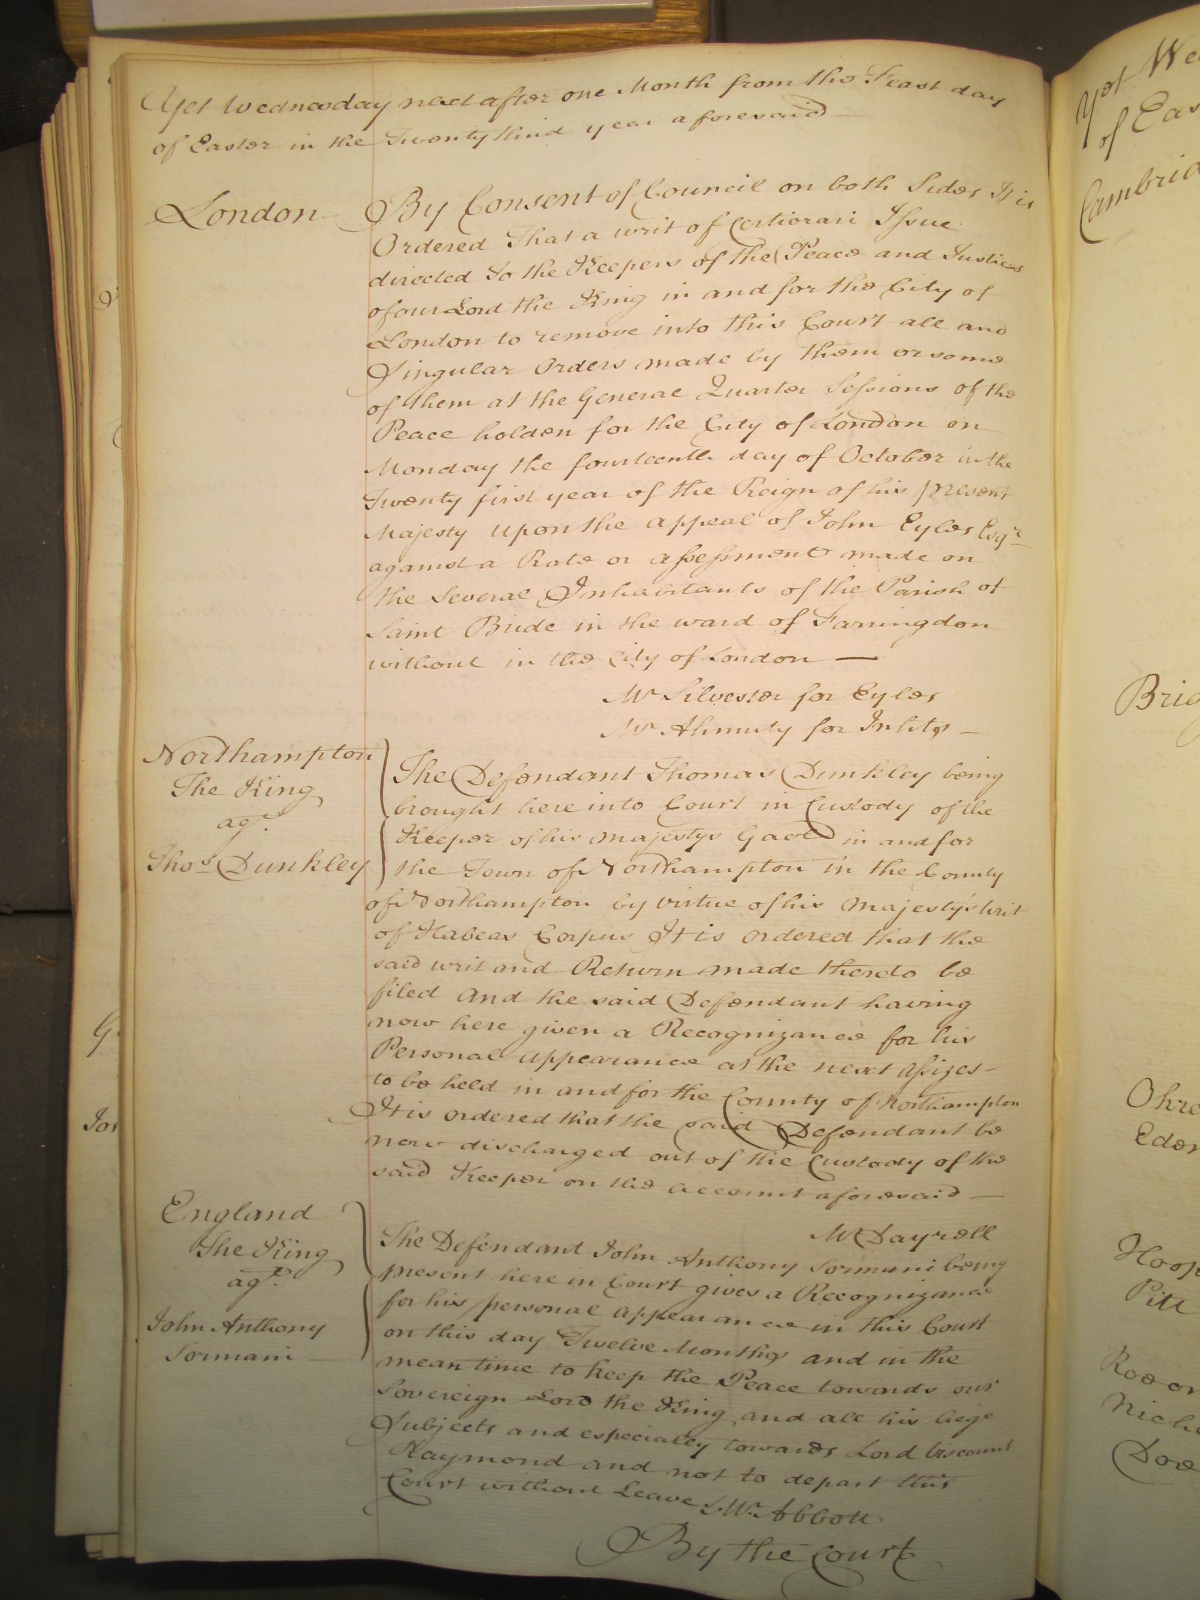 Yet Wednesday next after one Month from the Feast day
of Easter in the Twenty third year aforesaid
London
By Consent of Council on both Sides It is
Ordered That a writ of Certiorari Issue
directed to the Keepers of the Peace and Justices
of our Lord the King in and for the City of
London to remove into this Court all and
Singular Orders made by them or some
of them at the General Quarter Sessions of the
Peace holden for the City of London on
Monday the fourteenth day of October in the
Twenty first year of the Reign of his present
Majesty upon the appeal of John Eyles Esqr
against a Rate or assessment made on
the Several Inhabitants of the Parish of
Saint Bride in the ward of Farringdon
without in the City of London —
Mr Silvester for Eyles
Mr for Inhts —
Northampton
The King
agt
Thos Dunkley
The Defendant Thomas Dunkley being
brought here into Court in Custody of the
Keeper of his Majestys Gaol in and for
the Town of Northampton in the County
of Northampton by virtue of his Majesty's writ
of Habeas Corpus It is ordered that the
said writ and Return made thereto be
filed and the said Defendant having
now here given a Recognizance for his
Personal appearance at the next Assizes —
to be held in and for the County of Northampton
It is ordered that the said Defendant be
now discharged out of the Custody of the
said Keeper on the account aforesaid —
Mr Dayrell
England
The King
agt
John Anthony
Sormani
The Defendant John Anthony Sormani being
present here in Court gives a Recognizance
for his personal appearance in this Court
on this day Twelve Months and in the
mean time to keep the Peace towards our
Sovereign Lord the King and all his liege
Subjects and especially towards Lord Viscount
Raymond and not to depart this
Court without Leave
Mr Abbott
By the Court
Yet We
of Eas
Cambrid
Brig
Ohre
Eden
Hoop
Pitt
Roe on
Nich
Doe